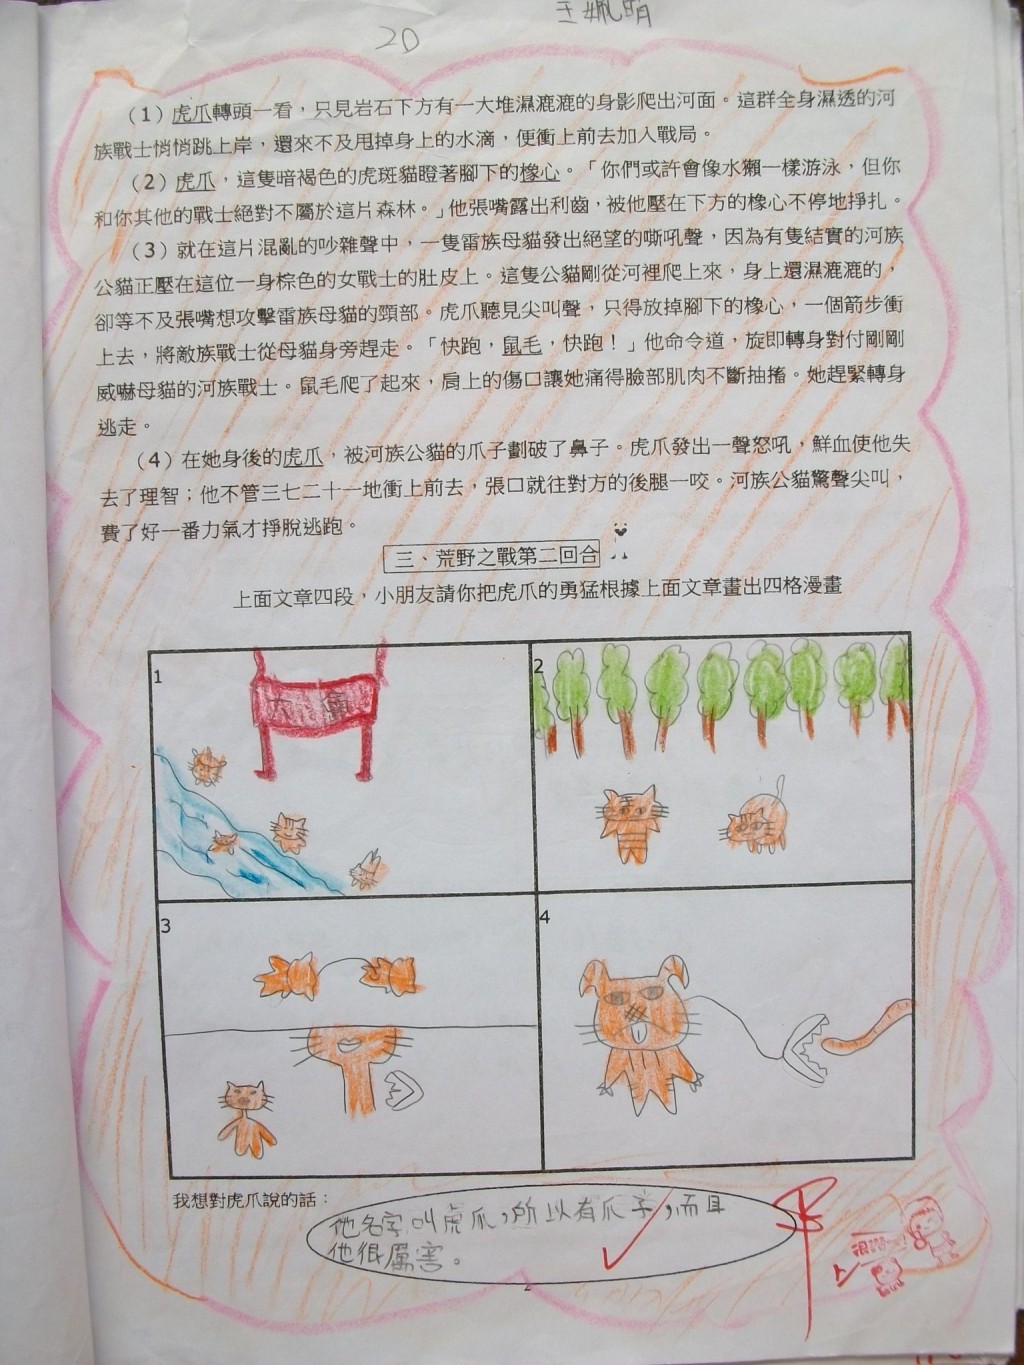 王姵明
20
（1）虎爪轉頭一看，只見岩石下方有一大堆濕漉漉的身影爬出河面。這群全身濕透的河
族戰士悄悄跳上岸，還來不及甩掉身上的水滴，便衝上前去加入戰局。
（2）虎爪，這隻暗褐色的虎斑貓瞪著腳下的橡心。「你們或許會像水獺一樣游泳，但你
和你其他的戰士絕對不屬於這片森林。」他張嘴露出利齒，被他壓在下方的橡心不停地掙扎。
（3）就在這片混亂的吵雜聲中，一隻雷族母貓發出絕望的嘶吼聲，因為有隻結實的河族
公貓正壓在這位一身棕色的女戰士的肚皮上。這隻公貓剛從河裡爬上來，身上還濕漉漉的，
卻等不及張嘴想攻擊雷族母貓的頸部。虎爪聽見尖叫聲，只得放掉腳下的橡心，一個箭步衝
上去，將敵族戰士從母貓身旁趕走。「快跑，鼠毛，快跑！」他命令道，旋即轉身對付剛剛
威嚇母貓的河族戰士。鼠毛爬了起來，肩上的傷口讓她痛得臉部肌肉不斷抽搐。她趕緊轉身
逃走。
（4）在她身後的虎爪，被河族公貓的爪子劃破了鼻子。虎爪發出一聲怒吼，鮮血使他失
去了理智；他不管三七二十一地衝上前去，張口就往對方的後腿一咬。河族公貓驚聲尖叫，
費了好一番力氣才掙脫逃跑。
三、荒野之戰第二回合
上面文章四段，小朋友請你把虎爪的勇猛根據上面文章畫出四格漫畫
1
2
大會
3
4
我想對虎爪說的話：
他名字叫虎爪，所以有爪子，而且
他很厲害。
2